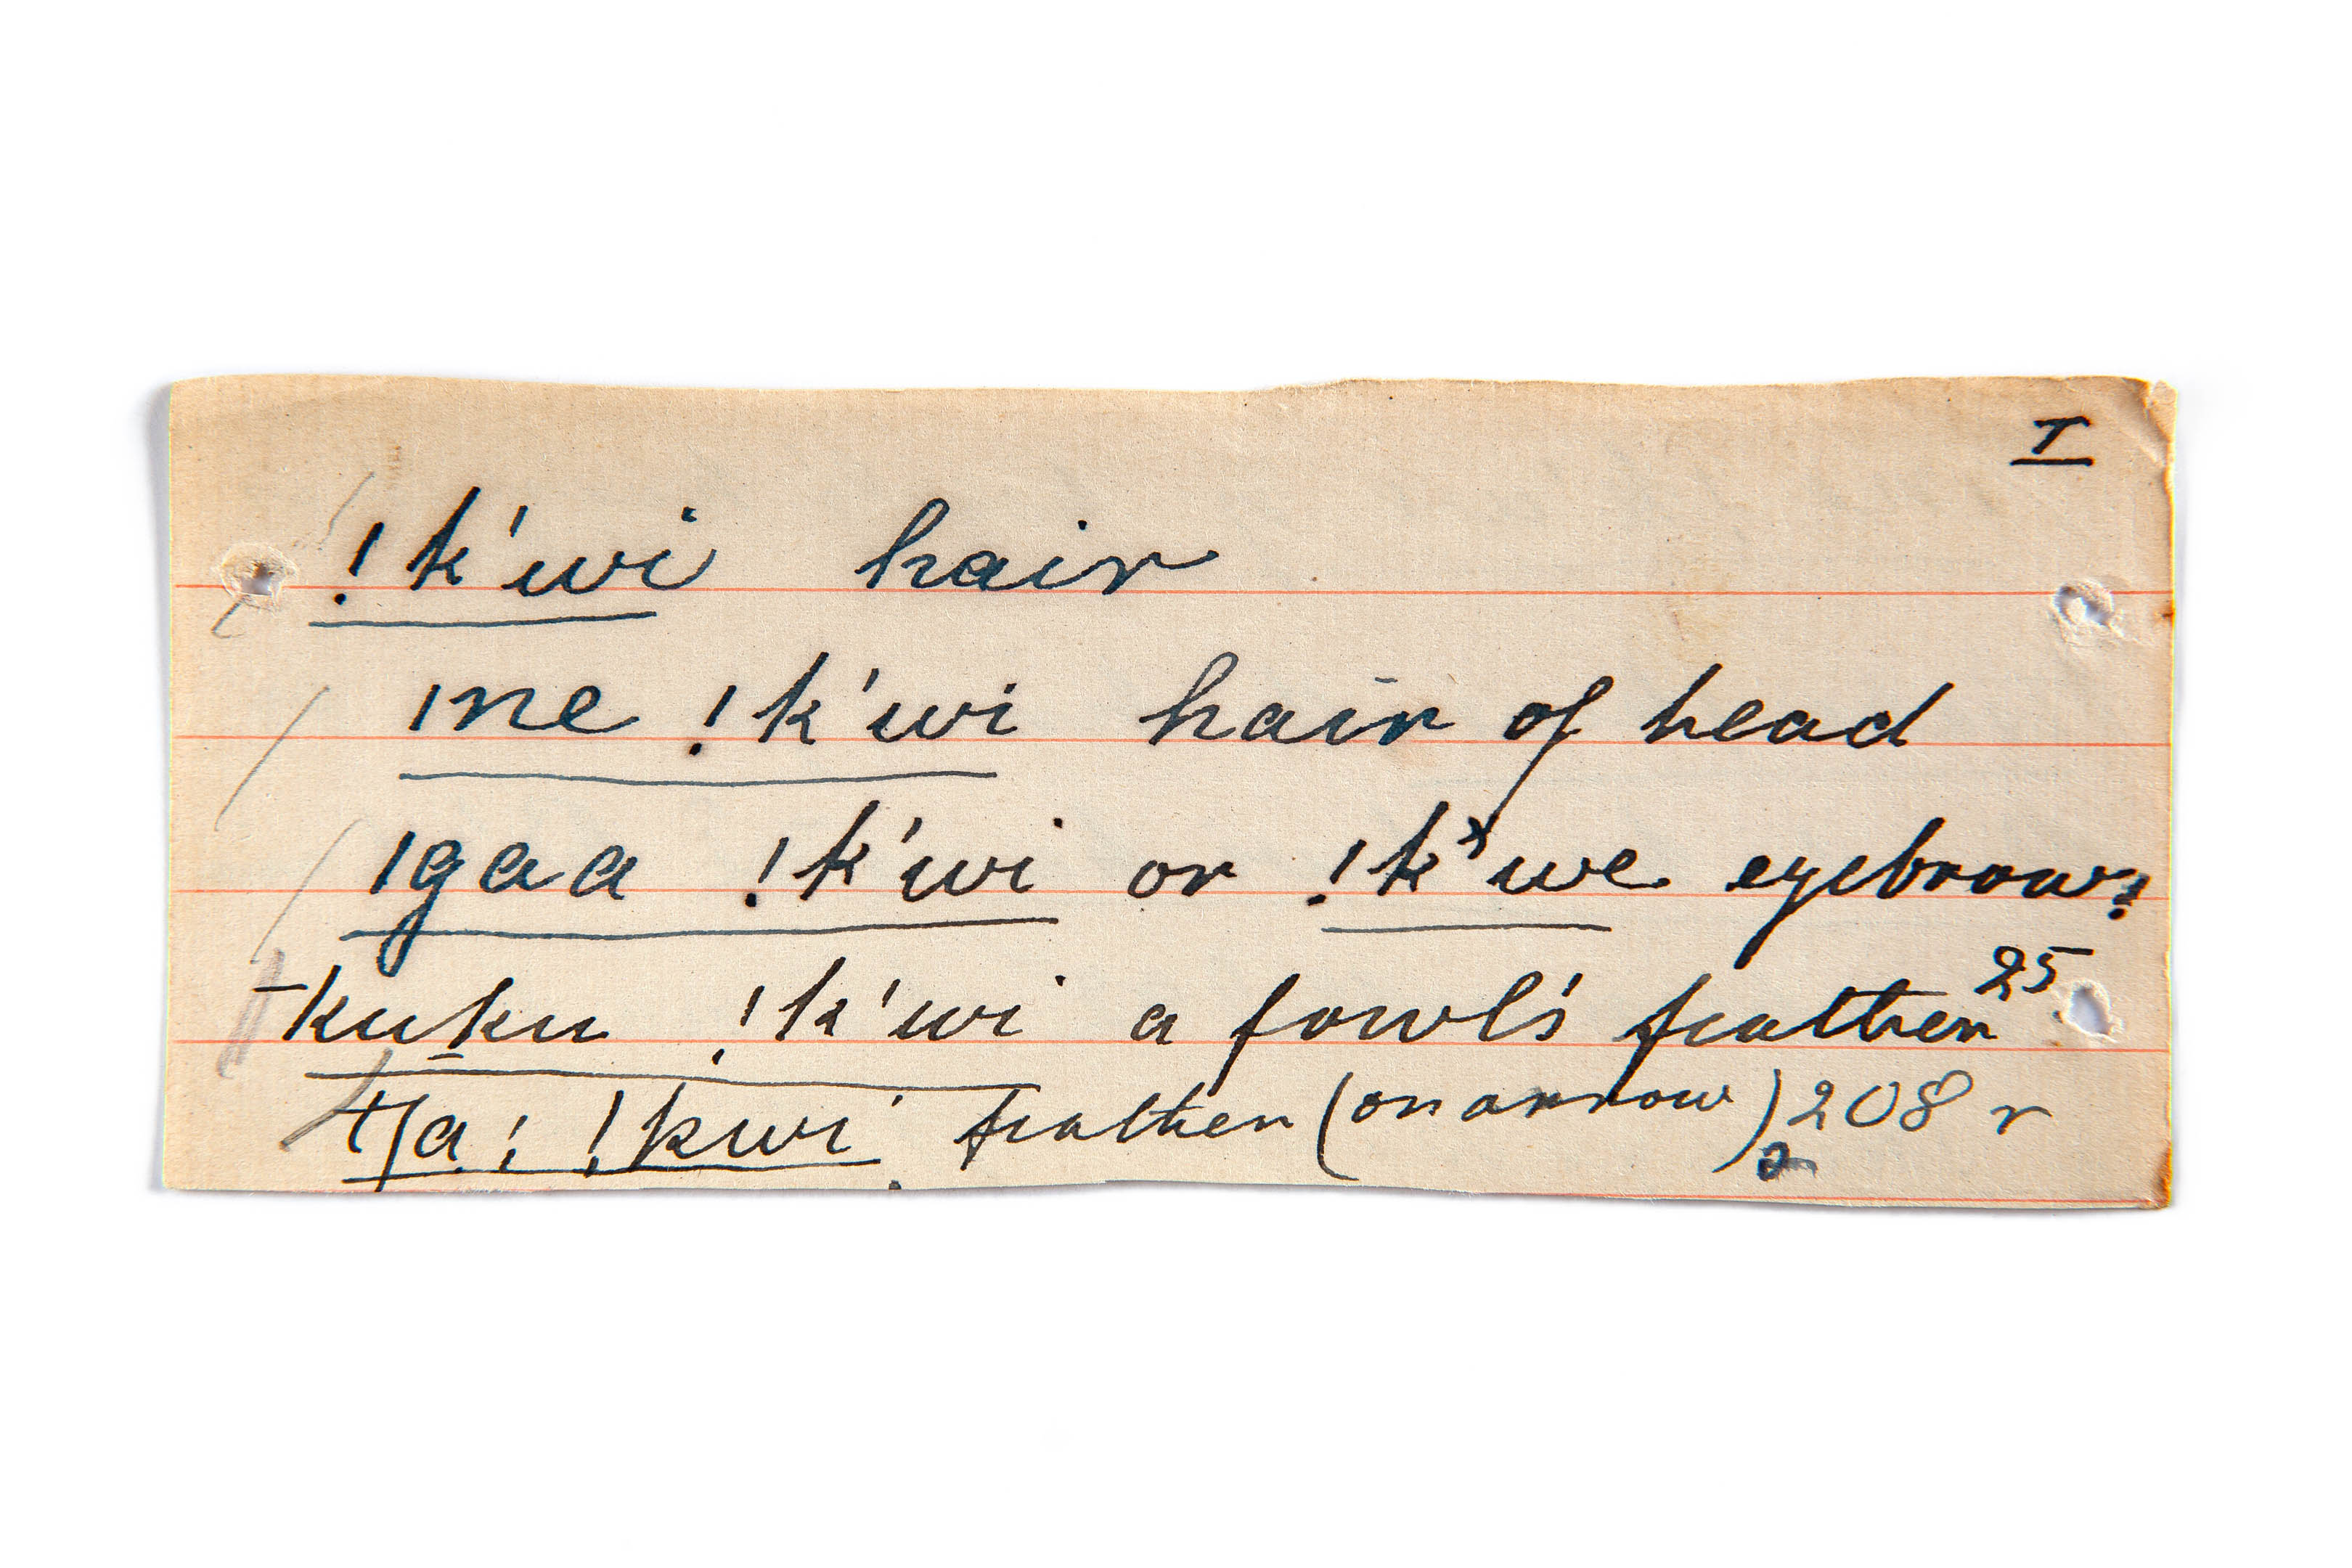 I
!k'wi hair
ǀne !k'wi hair of head
ǀgaa !k'wi or !kˣ'we eyebrow?
kuku !k'wi a fowl's feather 25
!kwi feather (on arrow) 208 r